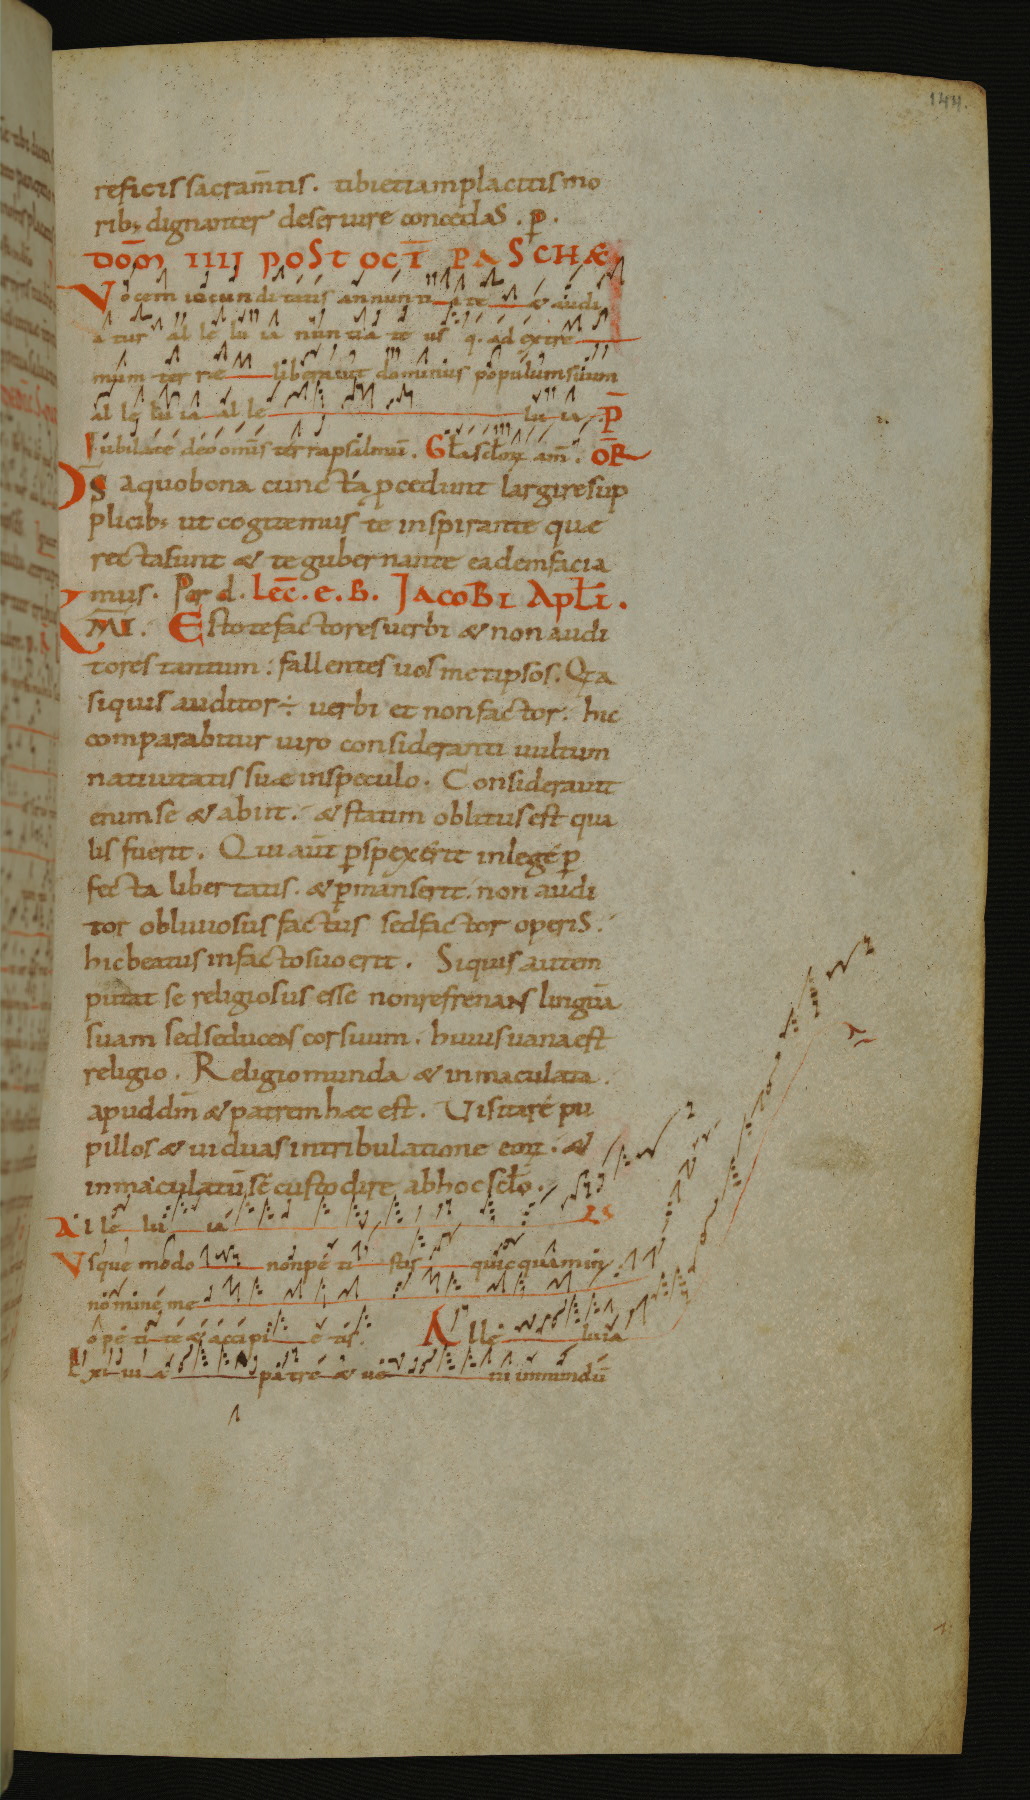 144.
reficis sacram̄tis. tibi etiam placitis mo
rib; dignanter deseruire concedaS. p̄.
DOM̄ IIII POST OCT̄ PASCHÆ
Vocem iocunditatis annuntiate & audi
atur alleluia nuntiate us q. ad extre
mum terræ liberauit dominus populum suum
alleluia alleluia. P̄
Iubilate deo om̄is terra psalmū. Gła scłoꝝ am̄. OR̄
DS̄ a quo bona cuncta p̄cedunt largire sup
plicib; ut cogitemus te inspirante quæ
recta sunt & te gubernante eadem facia
mus. Per d. Lec̄. e. B. JACOBI Apłi.
K̄MI. Estote factores uerbi & non audi
tores tantum: fallentes uosmetipsos. Qia
siquis auditor ÷ uerbi et non factor. hic
comparabitur uiro consideranti uultum
natiuitatis suæ in speculo. Considerauit
enim se & abiit. & statim oblitus est qua
lis fuerit. Qui aūt p̱spexerit in lege p̱
fecta libertatis. & p̱manserit. non audi
tor obliuiosus factus sed factor operiS.
hic beatus in facto suo erit. Siquis autem
putat se religiosus esse non refrenans linguā
suam sed seducens cor suum. huius uana est
religio. Religio munda & inmaculata.
apud dm̄ & patrem hæc est. Visitare pu
pillos & uiduas in tribulatione eoꝝ. &
inmaculatū sē custodire ab hoc scło.
Alleluia
Vsque modo non petistis quicquam in
nomine meo
petite & accipietis. Alleluia
Exiui a patre & ueni in mundū